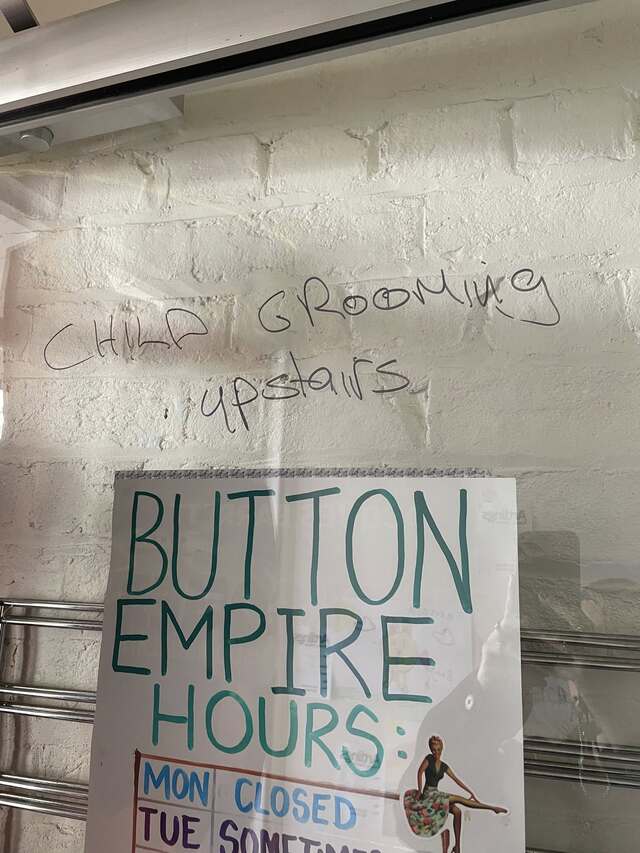 CHILD GROOMING
upstairs
BUTTON
EMPIRE
HOURS:
MON CLOSED
TUE